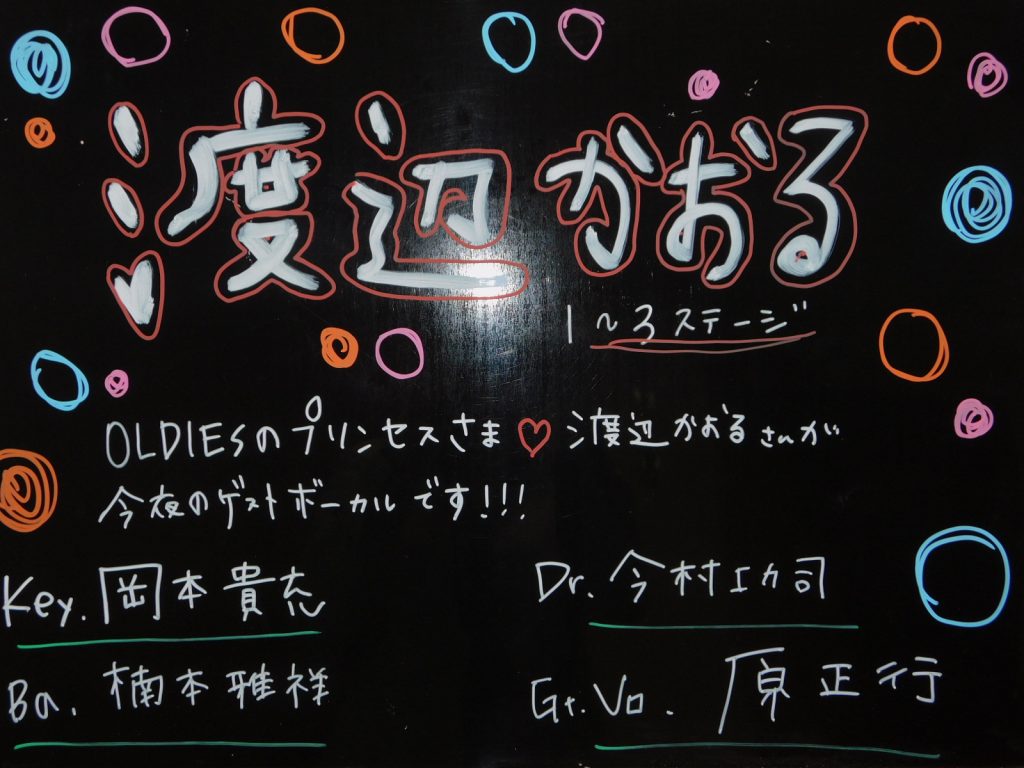 渡辺かおる
1～3ステージ
OLDIESのプリンセスさま♡渡辺かおるさんが
今夜のゲストボーカルです!!!
Key. 岡本貴充
Dr. 今村功司
Ba. 楠本雅祥
Gt.Vo. 原正行